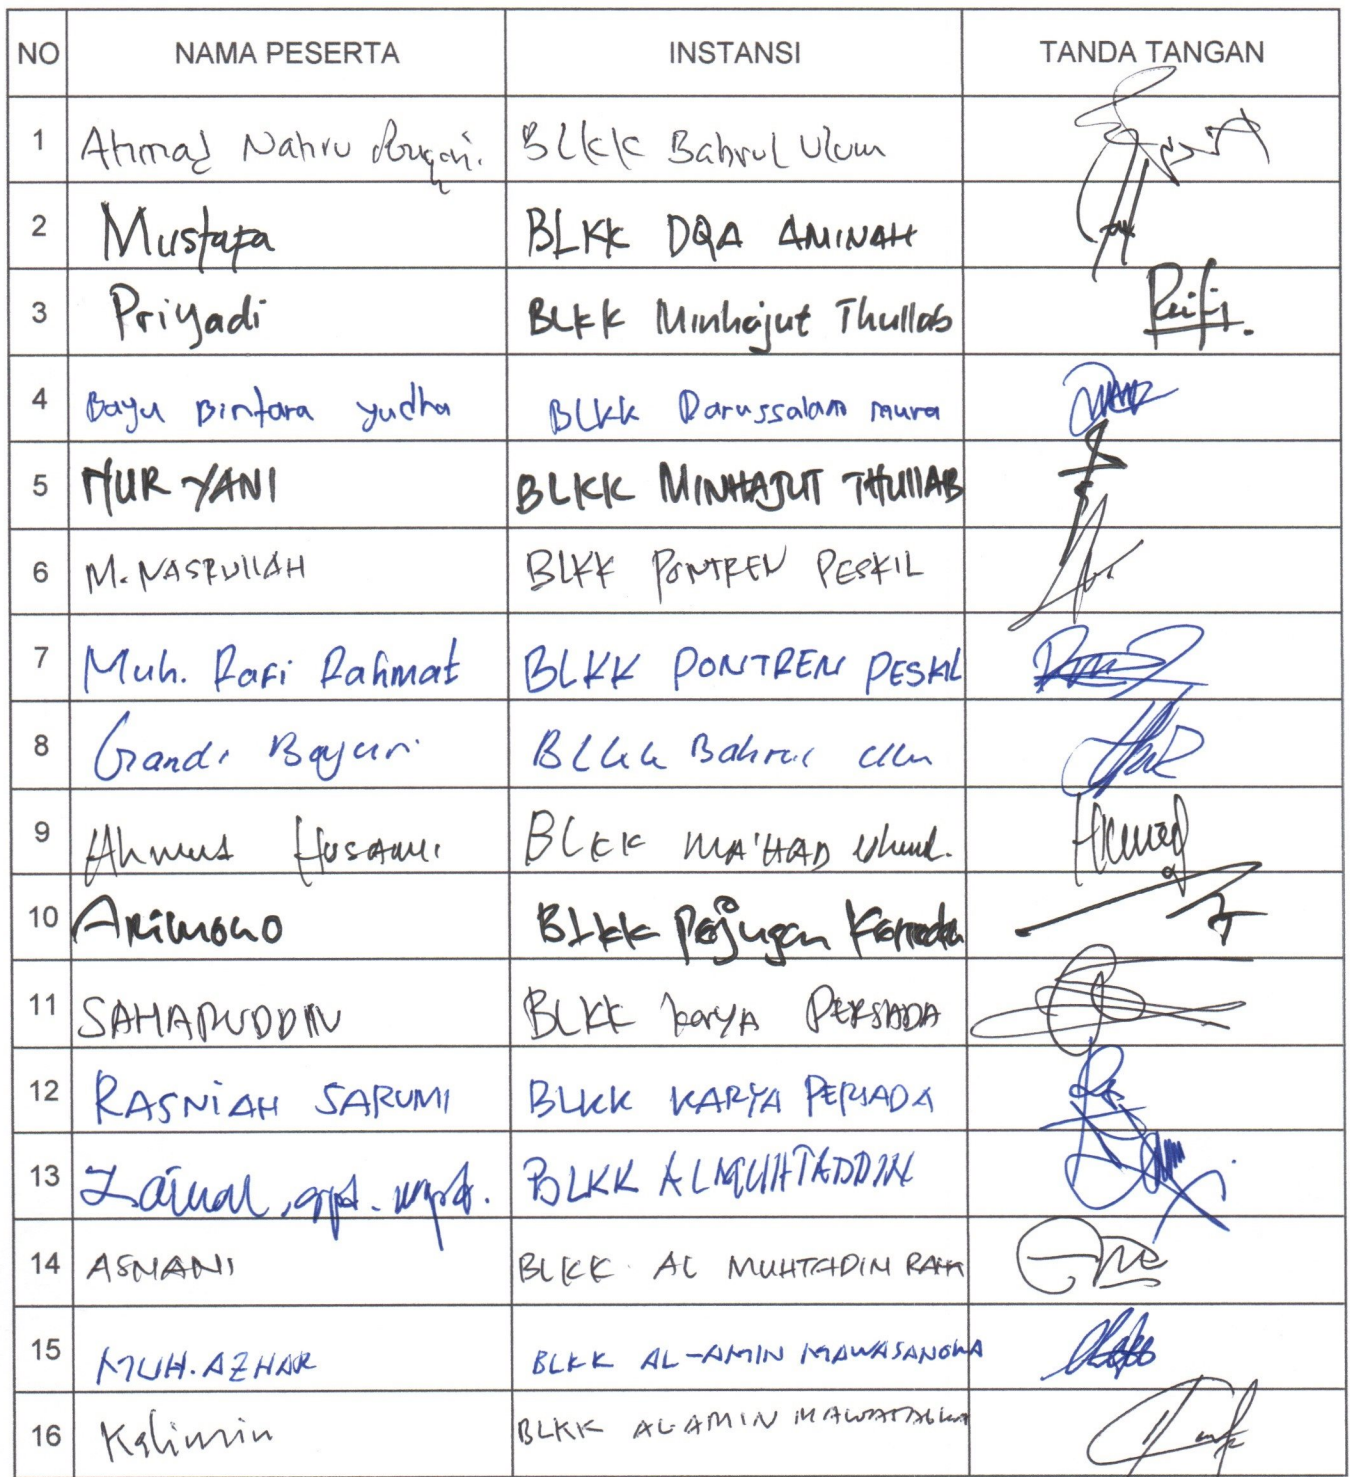 NO NAMA PESERTA INSTANSI TANDA TANGAN
1 Ahmad Nahru BLKK Bahrul Ulum
2 Mustafa BLKK DQA AMINAH
3 Priyadi BLKK Minhajut Thullab
4 Bayu Bintara yudha BLKK Darussalam mura
5 NUR YANI BLKK MINHAJUT THULLAB
6 M. NASRULLAH BLKK PONTREN PESKIL
7 Muh. Rafi Rahmat BLKK PONTREN PESKIL
8 Gandi Bayuri BLKK Bahrul Ulum
9 Ahmad Husaini BLKK MA'HAD
10 Arimono BLKK
11 SAHARUDDIN BLKK karyA PERSADA
12 RASNiAH SARUMI BLKK KARYA PERSADA
13 Zainal, BLKK ALMUHTADDIN
14 ASNANI BLKK AL MUHTADIN RAHA
15 MUH. AZHAR BLKK AL-AMIN MAWASANGKA
16 Kalimin BLKK AL-AMIN MAWASANGKA